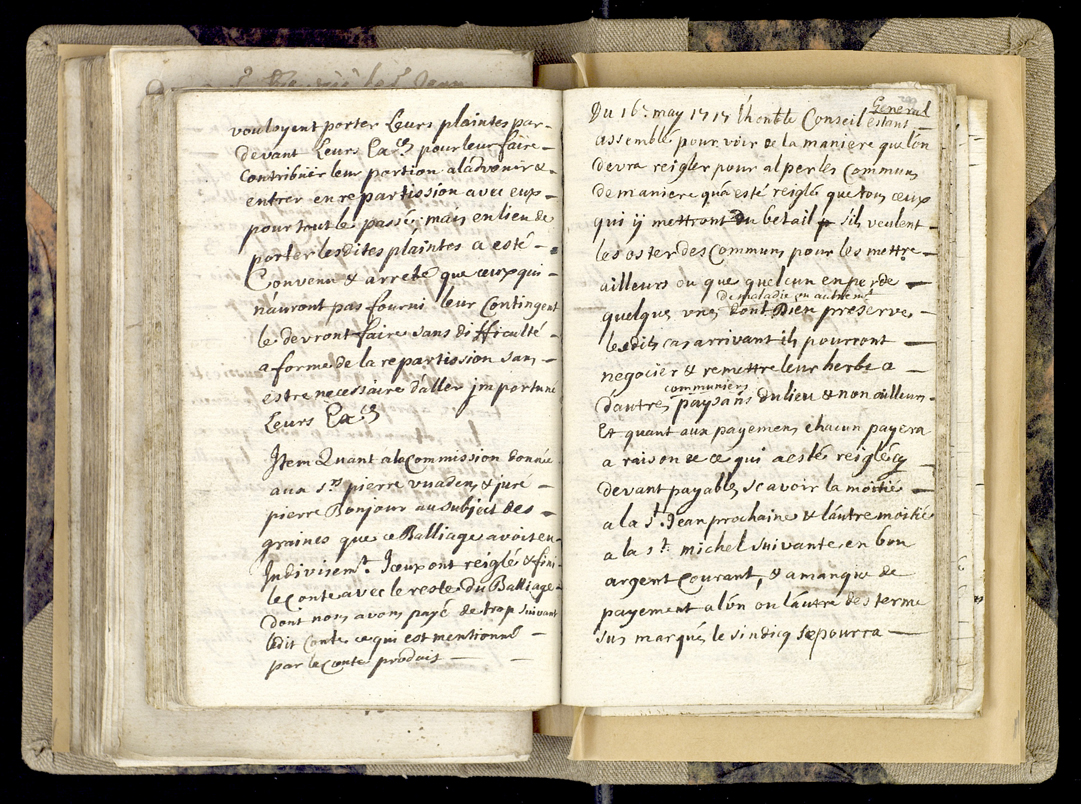 vouloyent porter Leurs plaintes par-
devant Leurs Ex.ces pour leur faire
Contribuer leur portion a ladvenir &
entrer en repartission avec eux
pour tout le passé; mais en lieu de
porter lesdites plaintes a esté
Convenu & arreté que ceux qui
n'auront pas fourni leur Contingent
le devront faire sans difficulté
a forme de la repartission sans
estre necessaire d'aller importuner
Leurs Ex.ces
Item Quant a la Commission donnée
aux s.rs pierre vuadens & juré
pierre Bonjour au subject des
graines que ce Balliage avoit en
Indivisem.t Iceux ont reiglé & fini
le Conte avec le reste du Balliage
dont nous avons payé de trop suivant
ledit Conte ce qui est mentionné
par le Conte produit
General
Du 16.e may 1717 l'honble Conseil estant
assemblé pour voir de la maniere que l'on
devra reigler pour alper les Communs
de maniere qu'a esté reiglé que tous ceux
qui ÿ mettront du betail s'ils veulent
les oster des Communs pour les mettre
ailleurs ou que quelcun en perde
de maladie ou autrem.t
quelques unes dont Dieu preserve
lesdits cas arrivant ils pourront
negocier & remettre leur herbe a
communiers
d'autres paysans du lieu & non ailleurs
Et quant aux payemens chacun payera
a raison de ce qui a esté reiglé cy
devant payables scavoir la moitié
a la s.t Jean prochaine & l'autre moitié
a la s.t michel suivante en bon
argent Courant, & a manque de
payement a l'un ou l'autre des terme
sus marqués le sindicq se pourra